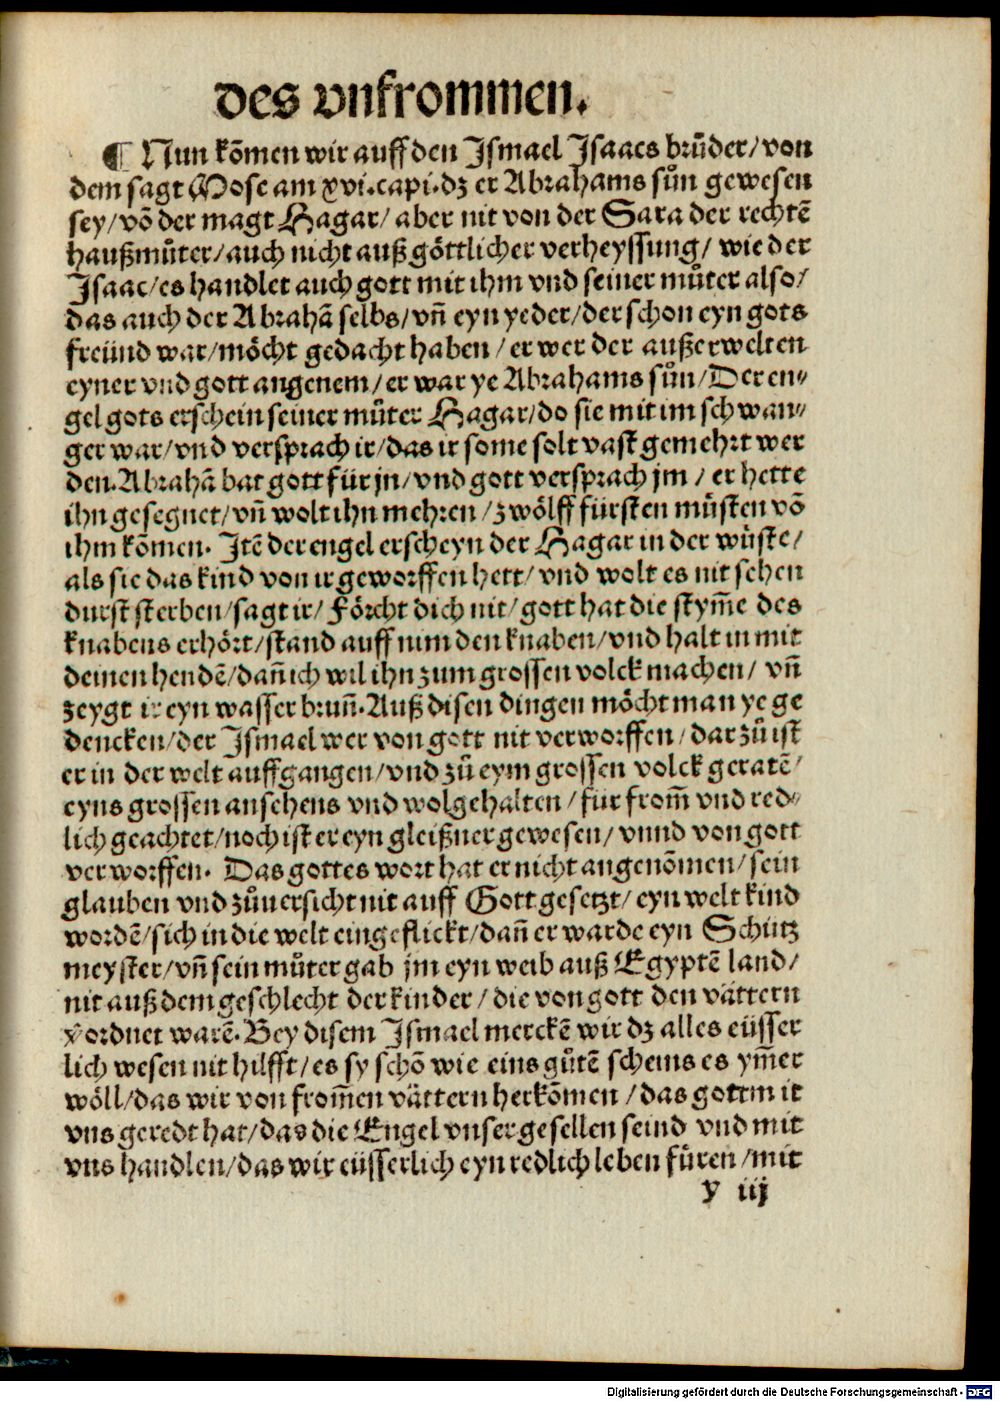 des vnfrommen.
¶ Nun kõmen wir auff den Jsmael Jsaacs brůder/von
dem sagt Mose am xvi.capi.dz er Abrahams sůn gewesen
sey/võ der magt Hagar/ aber nit von der Sara der rechtẽ
haußmůter/auch nicht auß göttlicher verheyssung/ wie der
Jsaac/es handlet auch gott mit ihm vnd seiner můter also/
das auch der Abrahã selbs/vñ eyn yeder/der schon eyn gots
freünd war/möcht gedacht haben/er wer der außerwelten
eyner vnd gott angenem/er war ye Abrahams sůn/Der en⸗
gel gots erschein seiner můter Hagar/do sie mit im schwan⸗
ger war/vnd versprach ir/das ir some solt vast gemehrt wer
den.Abrahã bat gott für jn/vnd gott versprach jm/ er hette
ihn gesegnet/vñ wolt ihn mehren/zwölff fürsten müsten võ
ihm kõmen. Jtẽ der engel erscheyn der Hagar in der wüste/
als sie das kind von ir geworffen hett/vnd wolt es nit sehen
durst sterben/sagt ir/ Förcht dich nit/gott hat die stym̃e des
knabens erhört/stand auff nim den knaben/vnd halt in mit
deinen hendẽ/dañ ich wil ihn zum grossen volck machen/ vñ
zeygt ir eyn wasser bruñ.Auß disen dingen möcht man ye ge
dencken/der Jsmael wer von gott nit verworffen/dar zů ist
er in der welt auffgangen/vnd zů eym grossen volck geratẽ/
eyns grossen ansehens vnd wolgehalten/für from̃ vnd red⸗
lich geachtet/noch ist er eyn gleißner gewesen/vnnd von gott
verworffen. Das gottes wort hat er nicht angenõmen/sein
glauben vnd zůuersicht nit auff Gott gesetzt/eyn welt kind
wordẽ/sich in die welt eingeflickt/dañ er warde eyn Schütz
meyster/vñ sein můter gab jm eyn weib auß Egyptẽ land/
nit auß dem geschlecht der kinder/die von gott den vättern
v̾ordnet warẽ.Bey disem Jsmael merckẽ wir dz alles eüsser
lich wesen nit hilfft/es sy schõ wie eins gůtẽ scheins es ym̃er
wöll/das wir von from̃en vättern herkõmen/das gott mit
vns geredt hat/das die Engel vnser gesellen seind vnd mit
vns handlen/das wir eüsserlich eyn redlich leben füren/mit
y iij
Digitalisierung gefördert durch die Deutsche Forschungsgemeinschaft - DFG